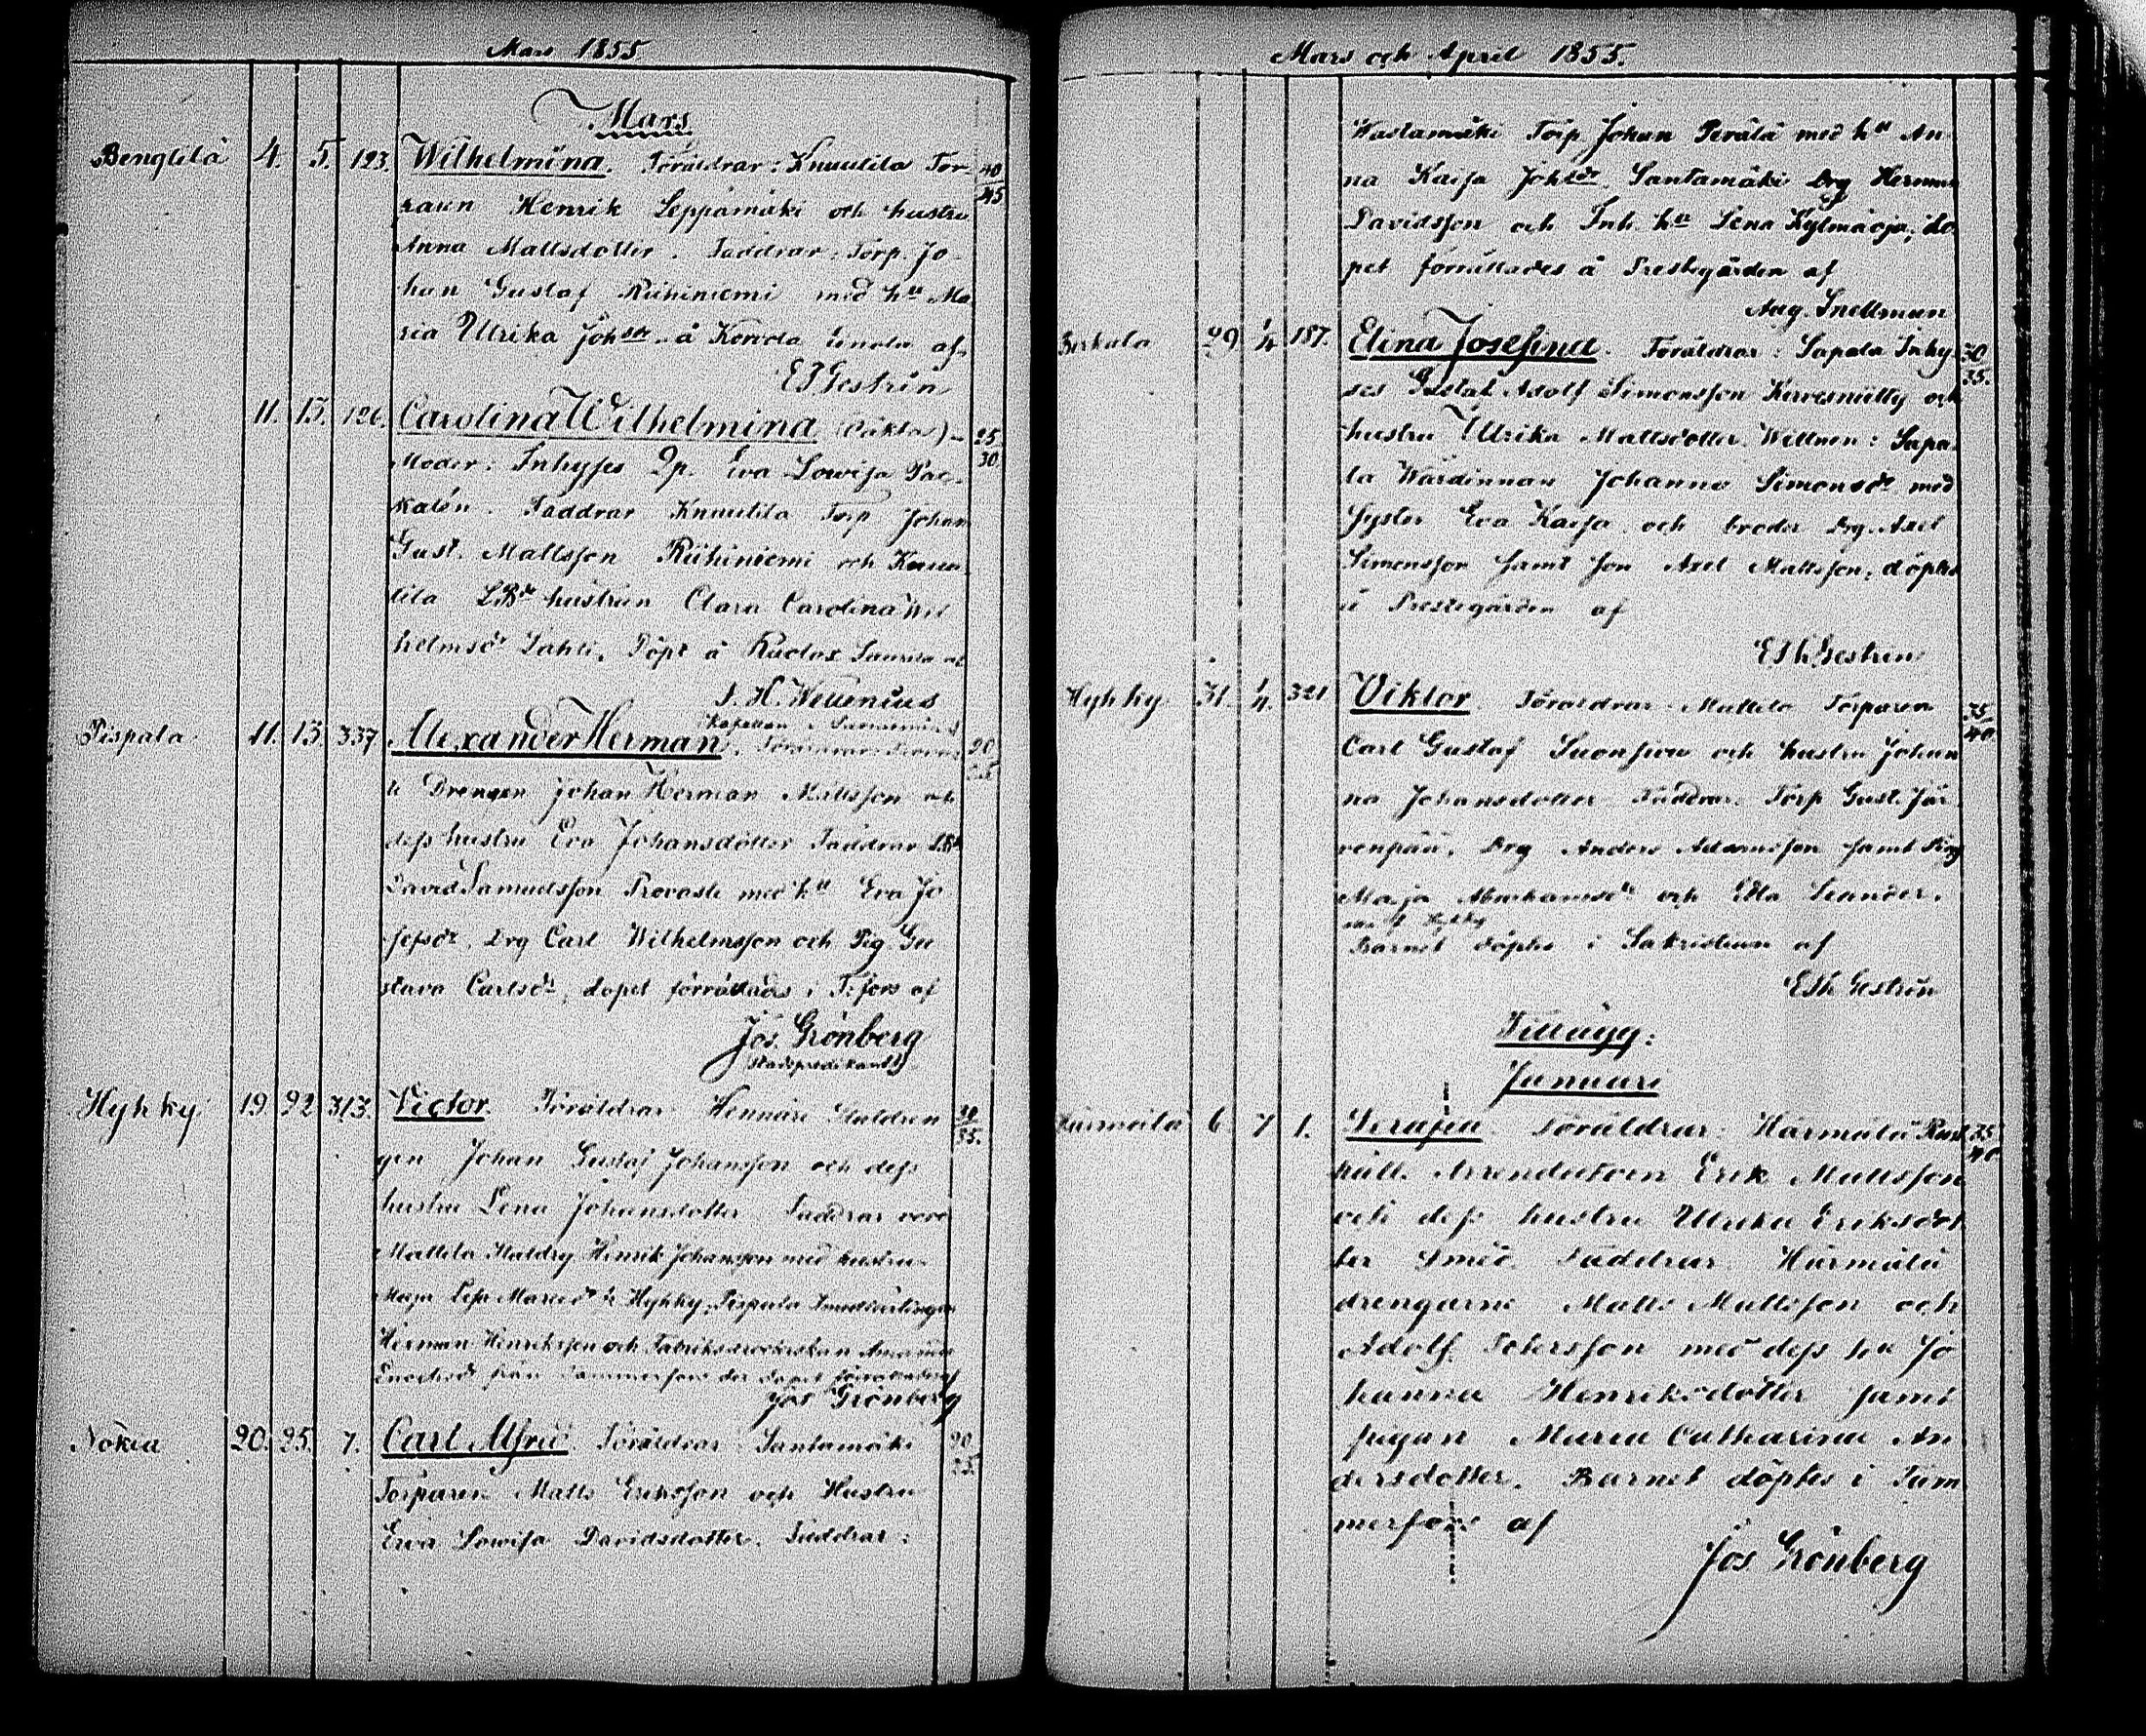 Mars 1855
Mars
Bengtilä 4. 5. 123. Wilhelmina. Föräldrar: Knuutila Tor- 40/45
paren Henrik Leppämäki och hustru
Anna Mattsdotter. Faddrar: Torp. Jo-
han Gustaf Riihiniemi med hu Ma
ria Ulrika Johsdr å af
E J Gestrin
11. 15. 126. Carolina Wilhelmina (oäkta) 25/30
Moder: Inhyses Qp. Eva Lowisa Pac-
kalén. Faddrar Knuutila Torp. Johan
Gust. Mattsson Riihiniemi och Knuu
tila hustrun Clara Carolina Wil
helmsdr Lahti. Döpt å af
J. H. Wellenius
Kapellan i
Pispala 11. 13. 337 Alexander Herman. Föräldrar: 20/25
Drengen Johan Herman Mattsson och
dess hustru Eva Johansdotter Faddrar
David Samuelsson Provasti med hu Eva Jo
sefsdr. Drg Carl Wilhelmsson och Pig Gu
stava Carlsdr, dopet förrättades i T:fors af
Jos. Grönberg
Stadspredikant
Hyhky 19 22 313. Victor. Föräldrar Hennäri Staldren 30/35.
gen Johan Gustaf Johansson och dess
hustru Lena Johansdotter Faddrar voro
Mattila Staldrg Henrik Johansson med hustru
Maja Lisa Mattsdr fr Hyhky, Pispala
Herman Henriksson och Amanda
från Tammerfors der dopet förrättades af
Jos Grönberg
Nokia 20. 25. 7. Carl Alfred. Föräldrar: Santamäki 20/25.
Torparen Matts Eriksson och Hustru
Eva Lowisa Davidsdotter. Faddrar:
Mars och April 1855.
Wastamäki Torp. Johan Perälä med hu An-
na Kaisa Johsdr. Santamäki Drg Herman
Davidsson och Inh. hu Lena Kylmäoja; do
pet förrättades å Prestegården af
Aug. Snellman
Birkala 29 1/4 187. Elina Josefina. Föräldrar: Sapala Inhy- 30/35.
ses Gustaf Adolf Simonsson Kervesniitty och
hustru Ulrika Mattsdotter. Wittnen: Sapa-
la Wärdinnan Johanna Simonsdr med
syster Eva Kaisa och broder Drg. Axel
Simonsson samt son Axel Mattsson, döptes
å Prestegården af
E Th Gestrin
Hyhky 31. 1/4. 321 Viktor Föräldrar Mattila Torparen 35/40
Carl Gustaf Suonsivu och hustru Johan
na Johansdotter Faddrar: Torp Gust. Jär
venpää, Drg Anders Adamsson samt Pig
Maja Abrahamsdr och Edla Leander.
Barnet döptes i Sakristian af
E Th Gestrin
Tillägg:
Januari
Härmälä 6. 7 1. Serafia Föräldrar: Härmälä Rust 35/40
håll. Arrendatorn Erik Mattsson
och dess hustru Ulrika Eriksdot
ter Smed. Faddrar Härmälä
drengarne Matts Mattsson och
Adolf Petersson med dess hu Jo
hanna Henriksdotter samt
pigan Maria Catharina An
dersdotter. Barnet döptes i Tam
merfors af
Jos Grönberg